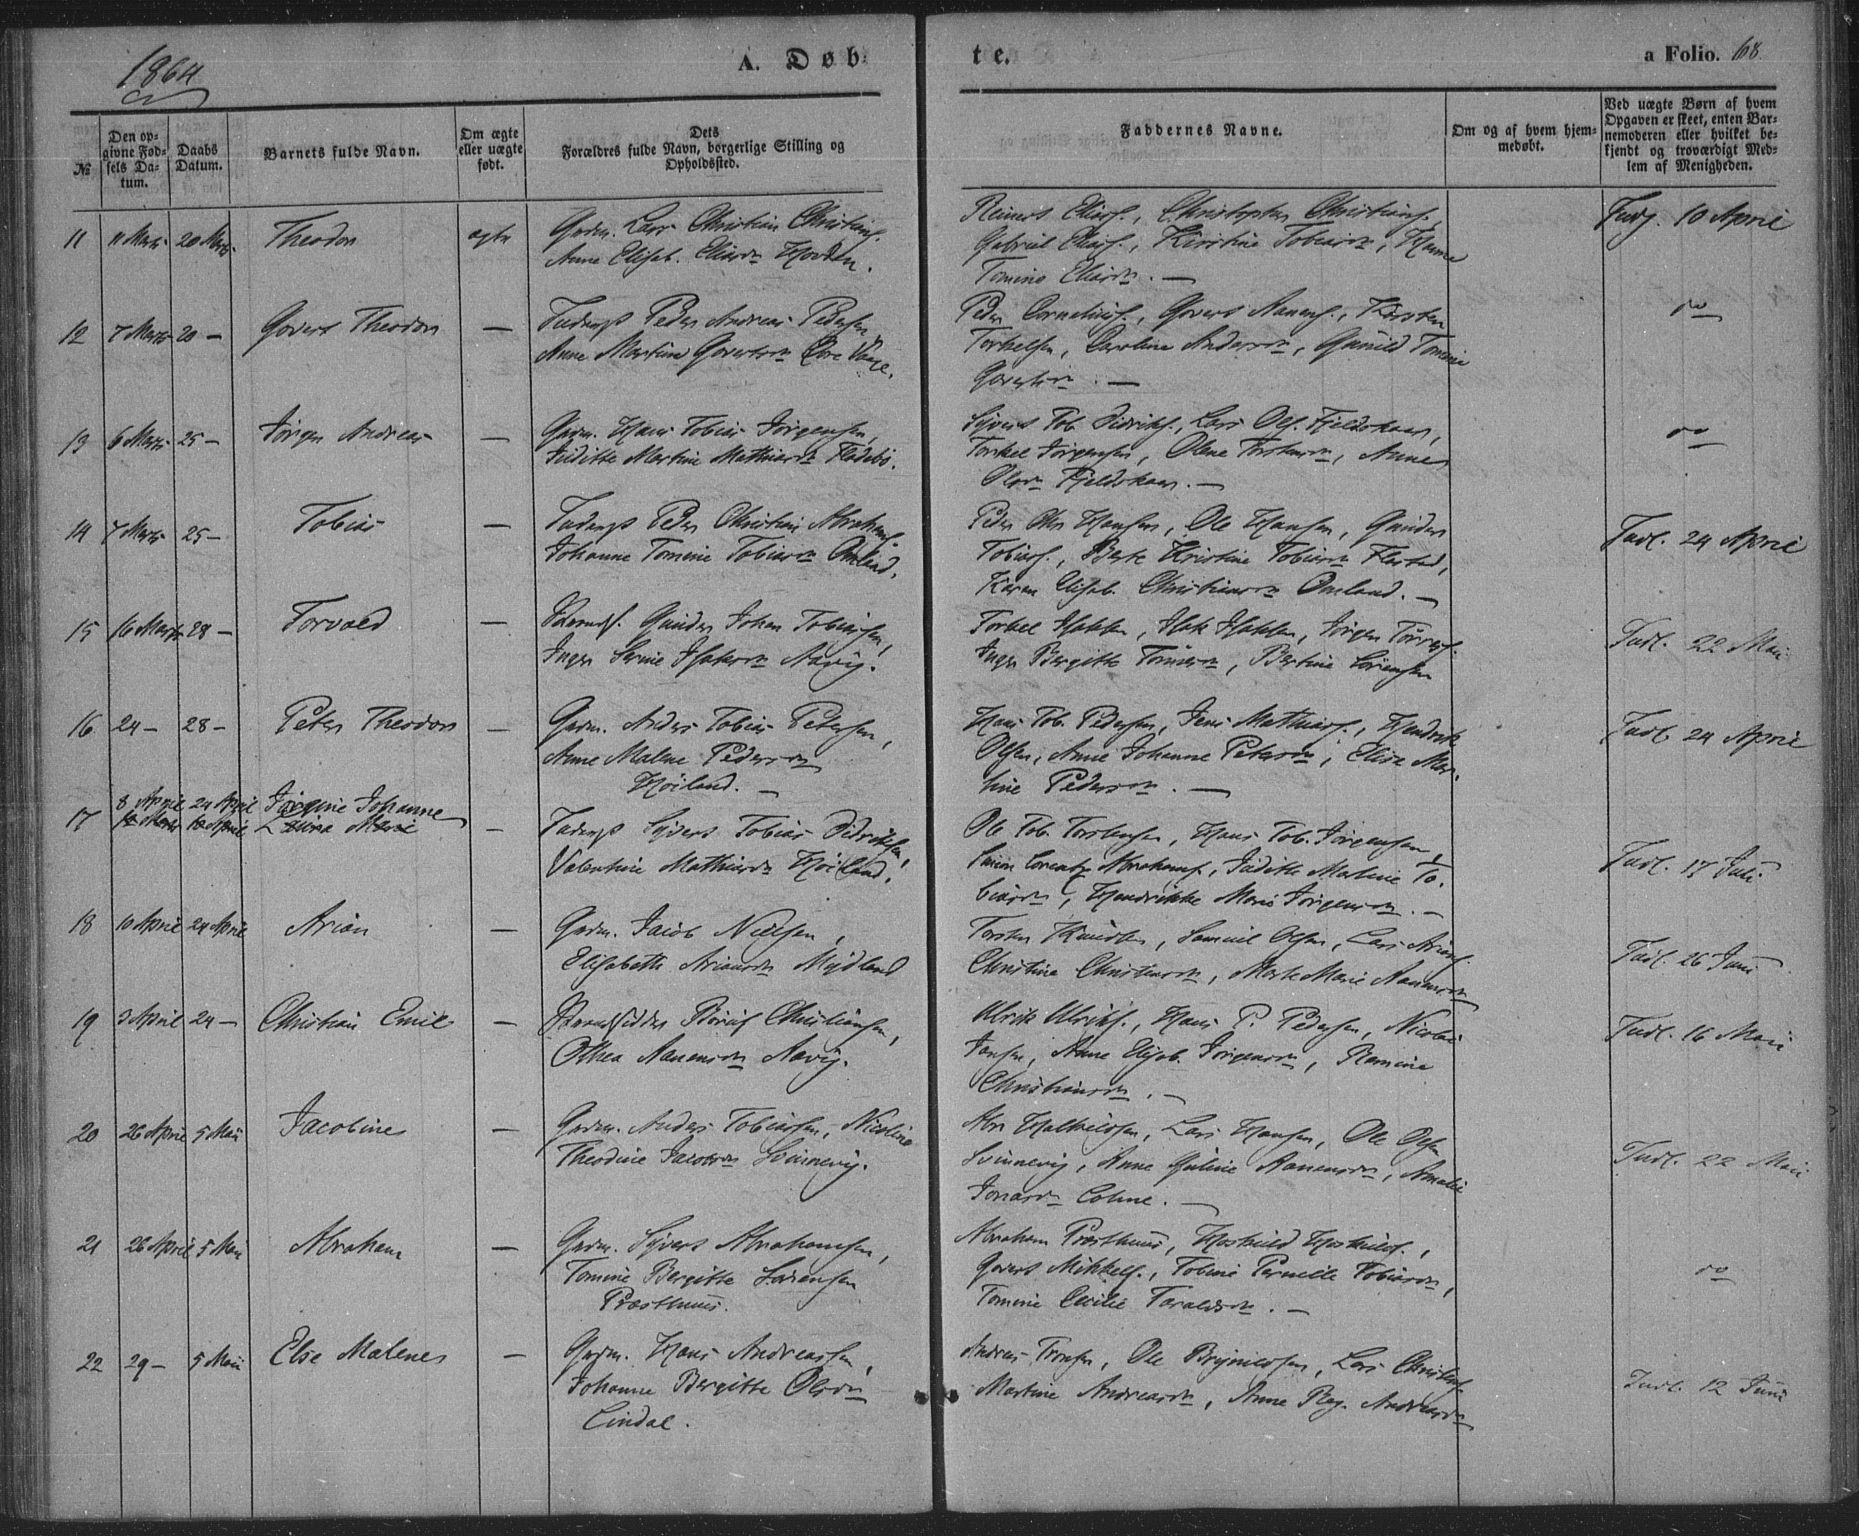 1864
A. Døb-
te.
a Folio. 68.
№
Den op-
givne Fød-
sels Da-
tum.
Daabs
Datum.
Barnets fulde Navn.
Om ægte
eller uægte
født.
Dets
Forældres fulde Navn, borgerlige Stilling og
Opholdssted.
Faddernes Navne.
Om og af hvem hjem-
medøbt.
Ved uægte Børn af hvem
Opgaven er skeet, enten Bar-
nemoderen eller hvilket be-
kjendt og troværdigt Med-
lem af Menigheden.
11 11 Marts 20 Marts Theodor ægte
Gadm. Lars Christian Christians.
Anne Elisab. Eliasdn
Reinert Eliass., Christopher Christians.,
Gabriel Eliass., Kirstine Tobiasdn, Hanne
Tomine Eliasdn. —
10 April
12 7 Marts 20 — Govert Theodor —
Peder Andreas Pedersen
Anne Martine Govertsdn Øvre Vaage.
Peder Cornelius., Govert Aanens., Kirsten
Torkelsen, Caroline Andersdn, Gunild Tomine
Govertsdn. —
do
13 6 Marts 25 — Jørgen Andreas —
Gadm. Hans Tobias Jørgensen,
Juditte Martine Mathiasdn
Syvert Tob. Didriks., Lars Ols. Fjeldskaar,
Torkel Jørgensen, Olene Torstensdn, Anne
Olsdn Fjeldskaar. —
do
14 7 Marts 25 — Tobias —
Peder Christian Abrahams.
Johanne Tomine Tobiasdn Omland.
Peder Chr. Hansen, Ole Hansen, Gunder
Tobias., Berte Kristine Tobiasdn
Karen Elisab. Christiansdn Omland. —
Indl. 24 April
15 16 Marts 28 — Torvald —
Gunder Johan Tobiassen,
Inger Serine Isaksdn Aavig.
Torkel Isaksen, Isak Isaksen, Jørgen
Inger Bergitte Tønnesdn, Bertine Sørensen
Indl. 22 Mai
16 24 — 28 — Peter Theodor —
Gadm. Anders Tobias Petersen,
Anne Malene Pedersdn
Høiland. —
Hans Tob. Pedersen, Jens Mathias., Hendrik
Olsen, Anne Johanne Petersdn, Elise Mar-
tine Pedersdn. —
Indl. 24 April
8 April 24 April Jørgine Johanne
17 April Marie —
Syvert Tobias Didriksen,
Valentine Mathiasdn Høiland.
Ole Tob. Torstensen, Hans Tob. Jørgensen,
Simon Lorentz Abrahams., Juditte Martine To-
biasdn, Hendrikke Marie Jørgensdn. —
Indl. 17 Juli
18 10 April 24 April Arian —
Gadm. Jacob Nielsen,
Elisabeth Ariansdn Mydland
Torsten Knudsen, Samuel Olsen, Lars Arians.
Christine Christiansdn, Marte Marie Aanensdn
Indl. 26 Juni
19 3 April 24 — Christian Emil —
Strandsidder Børuf Christiansen,
Othea Aanensdn Aavig.
Ulrik Ulriks., Hans P. Pedersen, Nicolai
Jansen, Anne Elisab. Jørgensdn, Ramine
Christiansdn. —
Indl. 16 Mai
20 26 April 5 Mai Jacobine —
Gadm. Anders Tobiassen, Nicoline
Theodine Jacobsdn Svinnevig.
Abr. Halkildsen, Lars Hansen, Ole Olsen
Svinnevig, Anne Guline Aanensdn, Amalie
Jonasdn
Indl. 22 Mai
21 26 April 5 Mai Abraham —
Gadm. Syvert Abrahamsen,
Tomine Bergitte Sørensen
Præsthuus.
Abraham Præsthuus, Hoskuld Hoskulds.,
Govert Mikkels., Tobine Pernelle Tobiasdn,
Tomine Cecilie Taraldsdn. —
do
22 29 — 5 Mai Else Malene —
Gadm. Hans Andreassen,
Johanne Bergitte Olsdn
Lindal.
Andreas Tronsen, Ole Brynildsen, Lars Christens.
Martine Andreasdn, Anne Reg. Andreasdn
Indl. 12 Juni